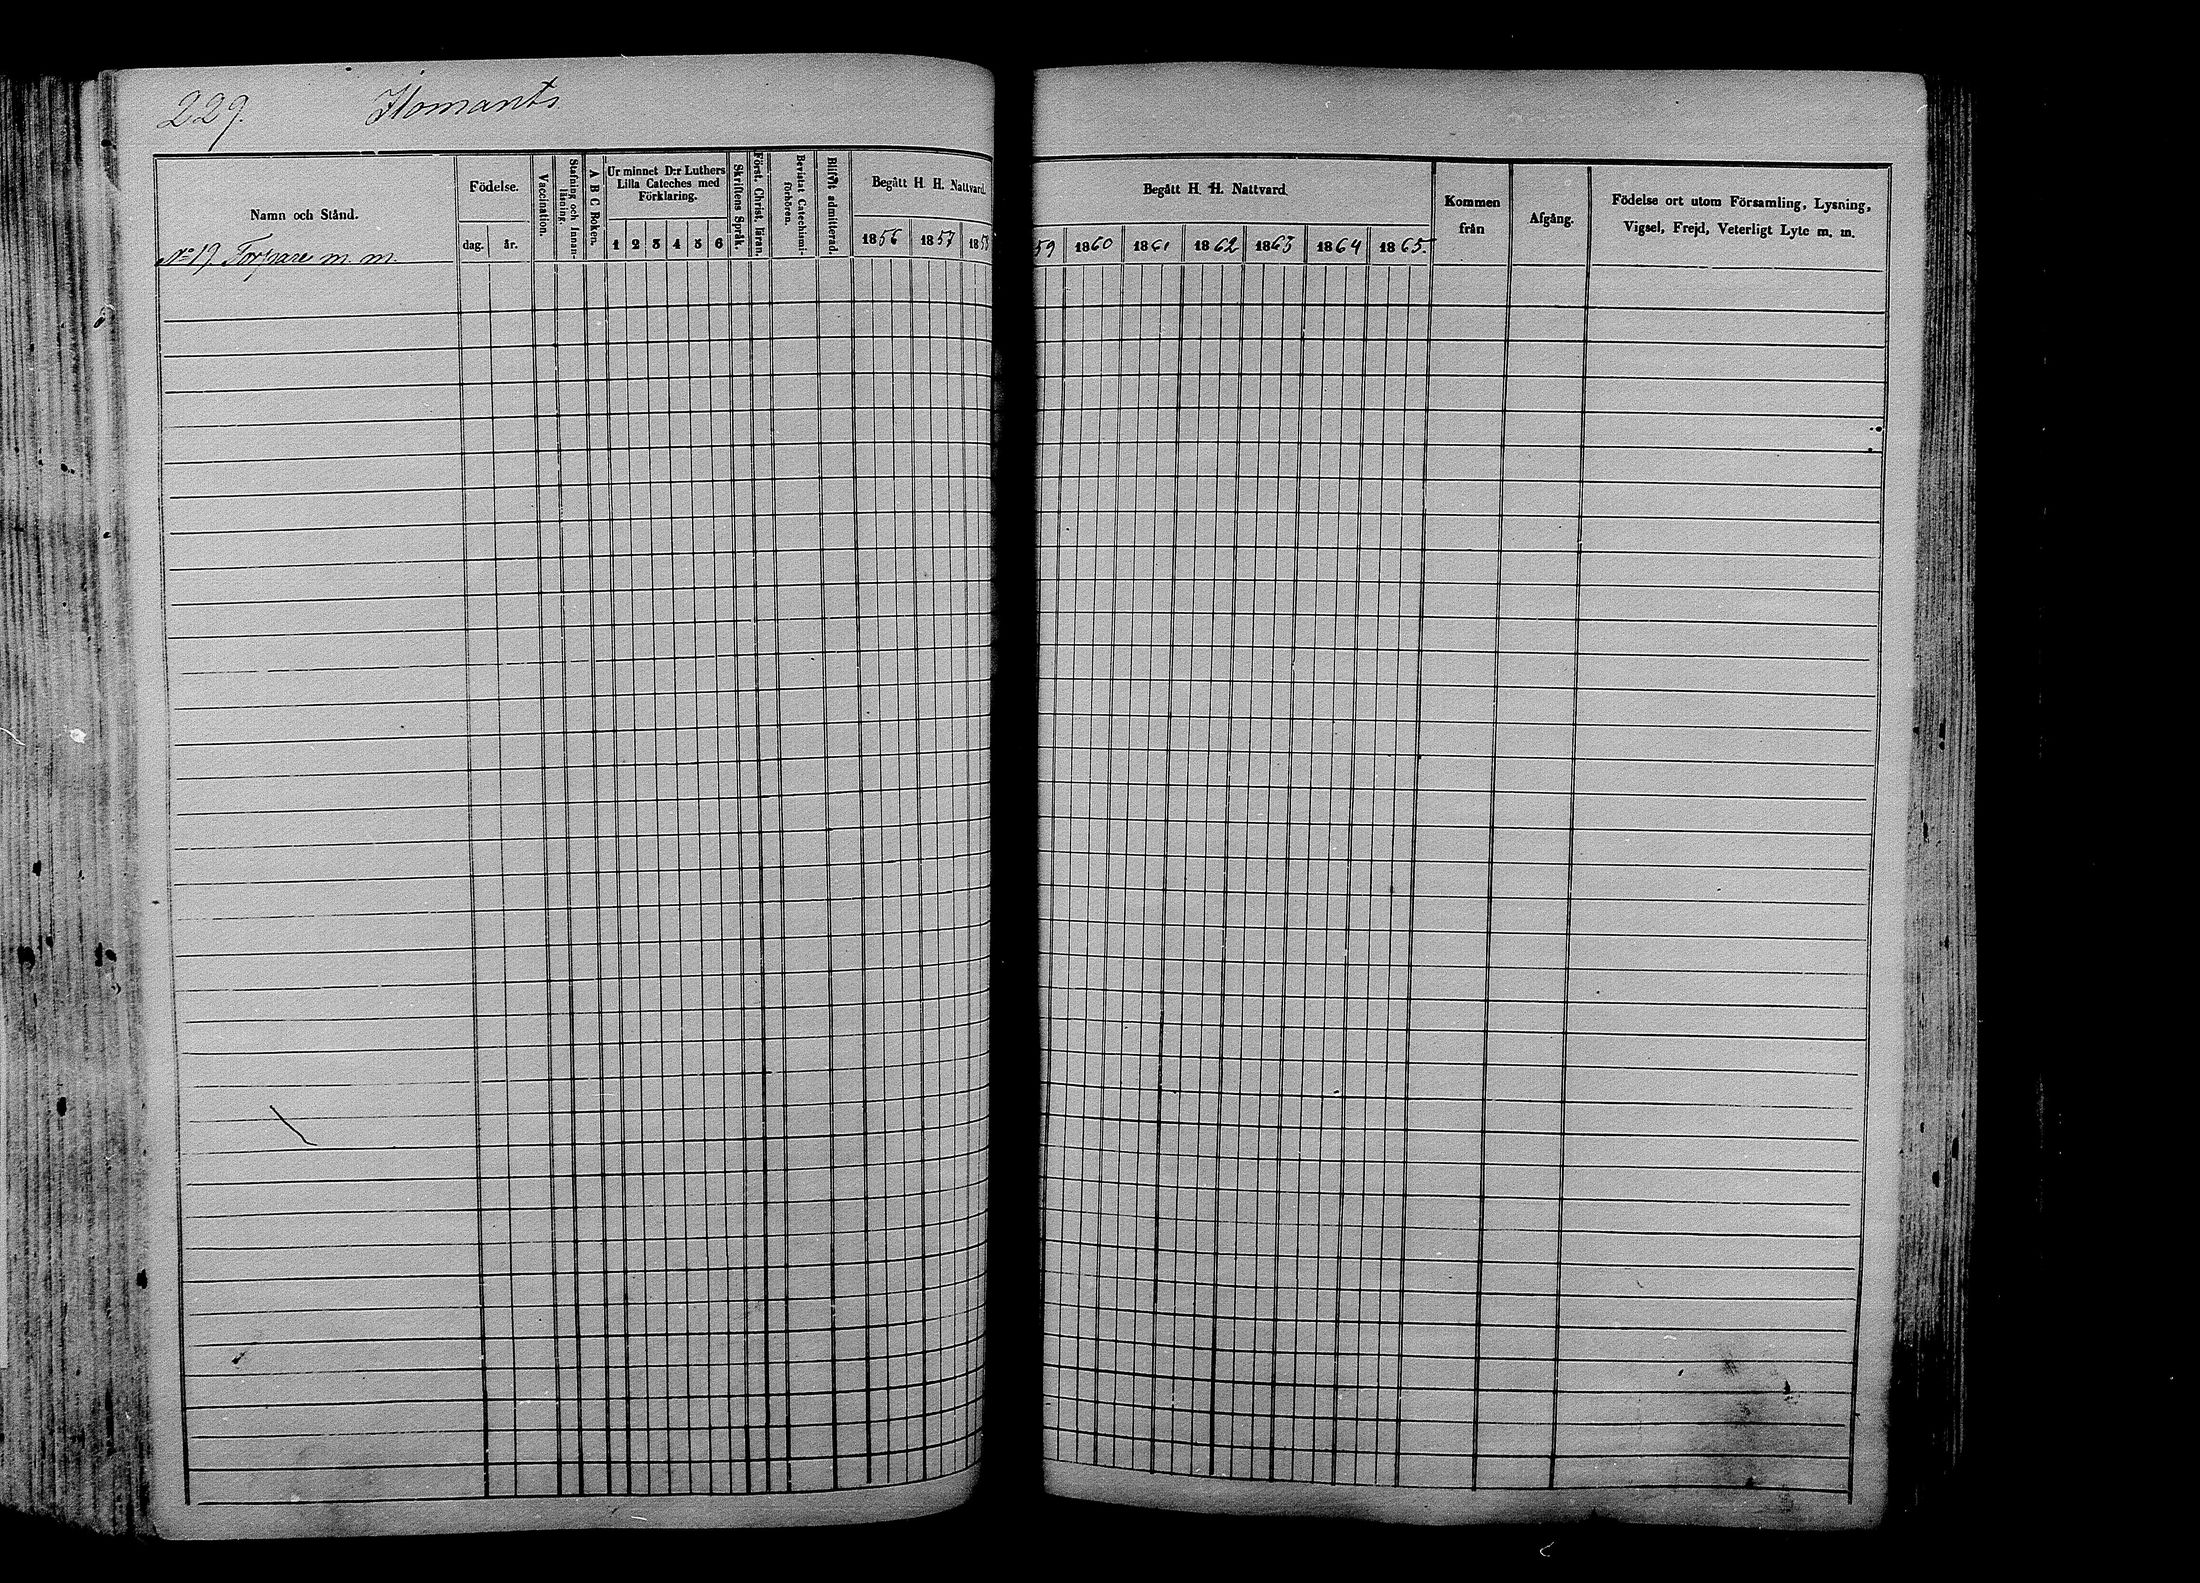 229. Ilomants
Namn och Stånd.
No 19. Torpare m. m.
Födelse.
dag. år.
Vaccination.
Stafning och Innan-
läsning.
A B C Boken.
Ur minnet D:r Luthers
Lilla Cateches med
Förklaring.
1 2 3 4 5 6
Skriftens Språk.
Först. Christ. läran.
Bevistat Catechismi-
förhören.
Blifvit admitterad.
Begått H. H. Nattvard.
1856 1857 1858
Begått H. H. Nattvard
59 1860 1861 1862 1863 1864 1865.
Kommen
från
Afgång.
Födelse ort utom Församling, Lysning,
Vigsel, Frejd, Veterligt Lyte m. m.